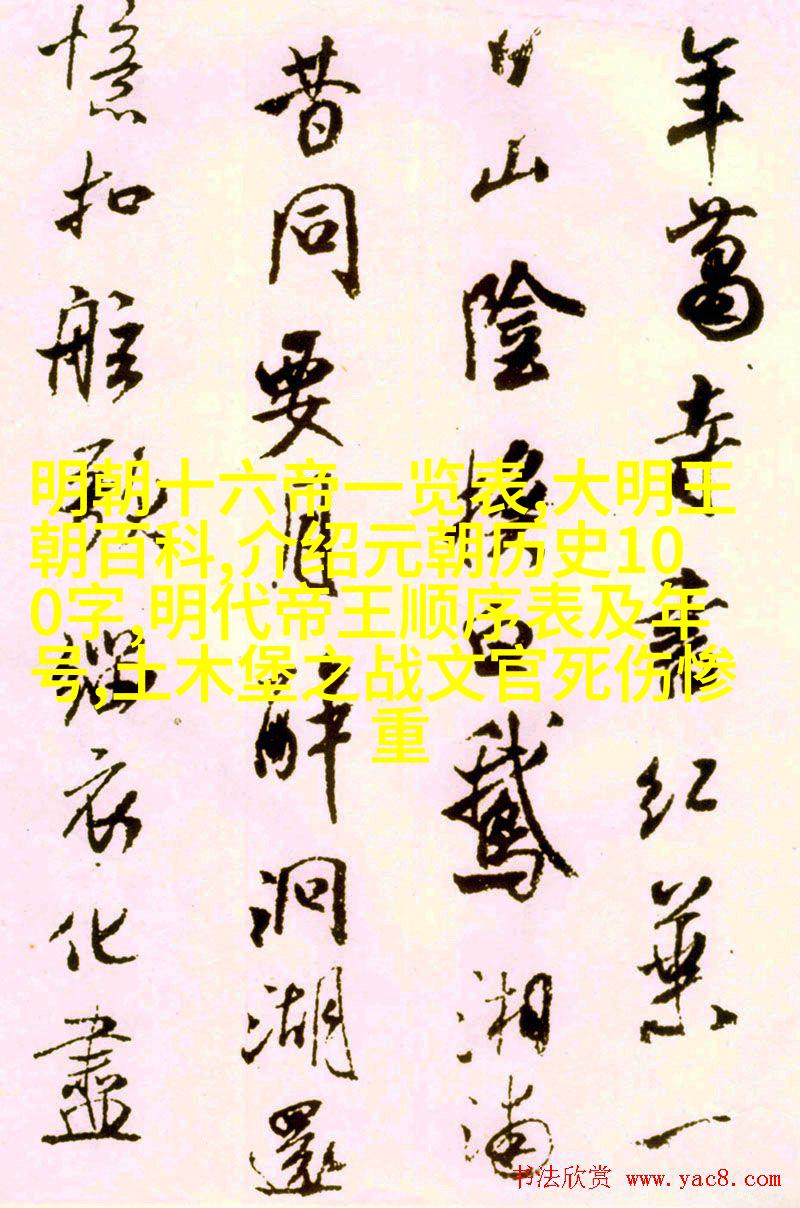 年葛建肃红叶一
山陰換白鵝湘浦
昔同要月醉洞湖還
憶扣舷歌衣化盡
明朝十六帝一览表,大明王
朝百科,介绍元朝历史10
0字,明代帝王顺序表及年
号,土木堡之战文官死伤惨
重
书法欣赏 www.yac8.com